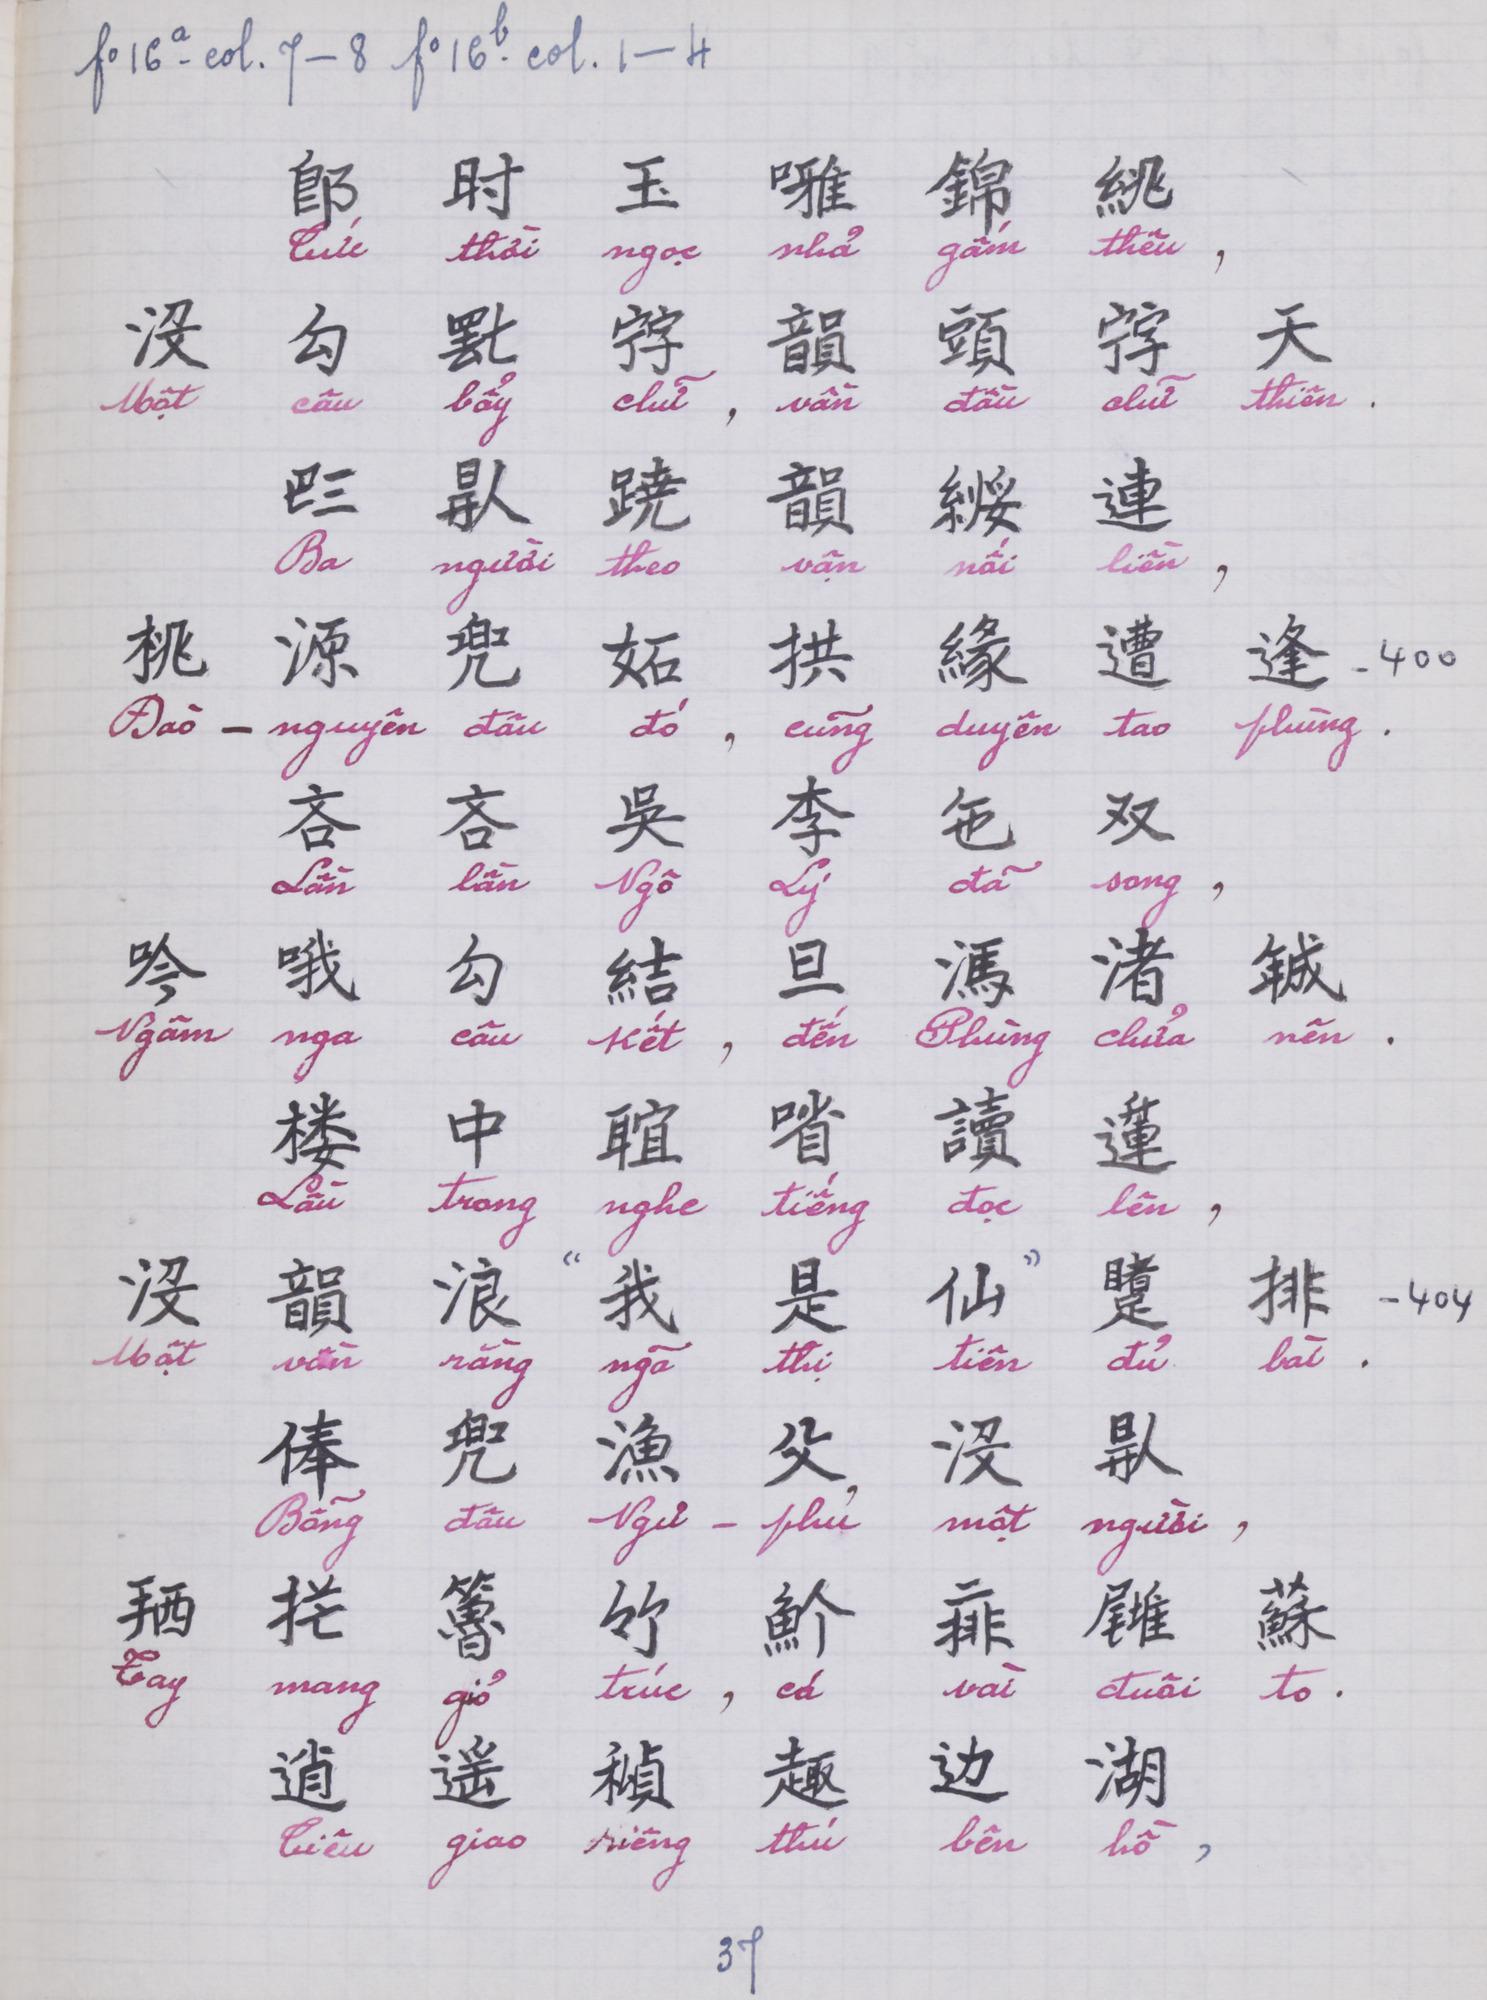 fº16ª. col. 7–8 fº16ᵇ. col. 1–4
郎 时 玉 𠲖 錦 絩
Tức thời ngọc nhả gấm thêu,
没 勾 𦉱 𡨸 韻 頭 𡨸 天
Một câu bảy chữ, vần đầu chữ thiên.
𠀧 𠊛 蹺 韻 綏 連
Ba người theo vận nối liền,
桃 源 兜 妬 拱 緣 遭 逢 -400
Đào – nguyên đâu đó, cũng duyên tao phùng.
吝 吝 吳 李 㐌 双
Lần lần Ngô Lý đã song,
吟 哦 勾 結 旦 馮 渚 𬭼
Ngâm nga câu kết, đến Phùng chửa nên.
楼 中 𦖑 㗂 讀 𨖲
Lầu trong nghe tiếng đọc lên,
没 韻 浪 “我 是 仙” 𨇜 排 -404
Một vần rằng ngã thị tiên đủ bài.
俸 兜 漁 父, 没 𠊛
Bỗng đâu Ngư – phủ một người,
𢬣 扰 籌 竹 𩵜 𠄧 𡳪 蘇
Tay mang giỏ trúc, cá vài đuôi to.
逍 遥 稹 趣 边 湖
Tiêu giao riêng thú bên hồ,
37